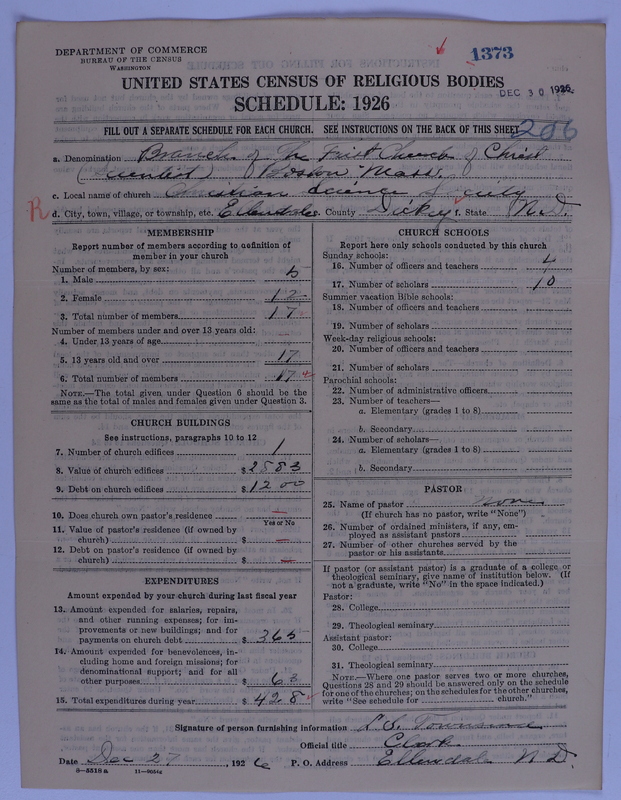 DEPARTMENT OF COMMERCE
BUREAU OF THE CENSUS
WASHINGTON
1373
UNITED STATES CENSUS OF RELIGIOUS BODIES
DEC 30 1926
SCHEDULE: 1926
FILL OUT A SEPARATE SCHEDULE FOR EACH CHURCH. SEE INSTRUCTIONS ON THE BACK OF THIS SHEET
206
a. Denomination Branch of The First Church of Christ
(Scientist) Boston Mass.
c. Local name of church Christian Science Society
R d. City, town, village, or township, etc. Ellendale e. County Dickey f. State N.D.
MEMBERSHIP
Report number of members according to definition of
member in your church
Number of members, by sex:
1. Male 5
2. Female 12
3. Total number of members 17
Number of members under and over 13 years old:
4. Under 13 years of age
5. 13 years old and over 17
6. Total number of members 17
NOTE.—The total given under Question 6 should be
same as the total of males and females given under Question 3.
CHURCH BUILDINGS
See instructions, paragraphs 10 to 12
7. Number of church edifices 1
8. Value of church edifices $ 2883
9. Debt on church edifices $ 1200
10. Does church own pastor's residence —
Yes or No
11. Value of pastor's residence (if owned by
church) $ —
12. Debt on pastor's residence (if owned by
church) $ —
EXPENDITURES
Amount expended by your church during last fiscal year
13. Amount expended for salaries, repairs,
and other running expenses; for im-
provements or new buildings; and for
payments on church debt $ 365
14. Amount expended for benevolences, in-
cluding home and foreign missions; for
denominational support; and for all
other purposes $ 63
15. Total expenditures during year $ 428
CHURCH SCHOOLS
Report here only schools conducted by this church
Sunday schools:
16. Number of officers and teachers 4
17. Number of scholars 10
Summer vacation Bible schools:
18. Number of officers and teachers
19. Number of scholars
Week-day religious schools:
20. Number of officers and teachers
21. Number of scholars
Parochial schools:
22. Number of administrative officers
23. Number of teachers—
a. Elementary (grades 1 to 8)
b. Secondary
24. Number of scholars—
a. Elementary (grades 1 to 8)
b. Secondary
PASTOR
25. Name of pastor None
(If church has no pastor, write "None")
26. Number of ordained ministers, if any, em-
ployed as assistant pastors
27. Number of other churches served by the
pastor or his assistants
If pastor (or assistant pastor) is a graduate of a college or
theological seminary, give name of institution below. (If
not a graduate, write "No" in the space indicated.)
Pastor:
28. College
29. Theological seminary
Assistant pastor:
30. College
31. Theological seminary
NOTE.—Where one pastor serves two or more churches,
Questions 28 and 29 should be answered only on the schedule
for one of the churches; on the schedules for the other churches,
write "See schedule for church."
Signature of person furnishing information
Official title Clerk
Date Dec 27, 1926 P. O. Address Ellendale N D
8—5518 a 11—9054a